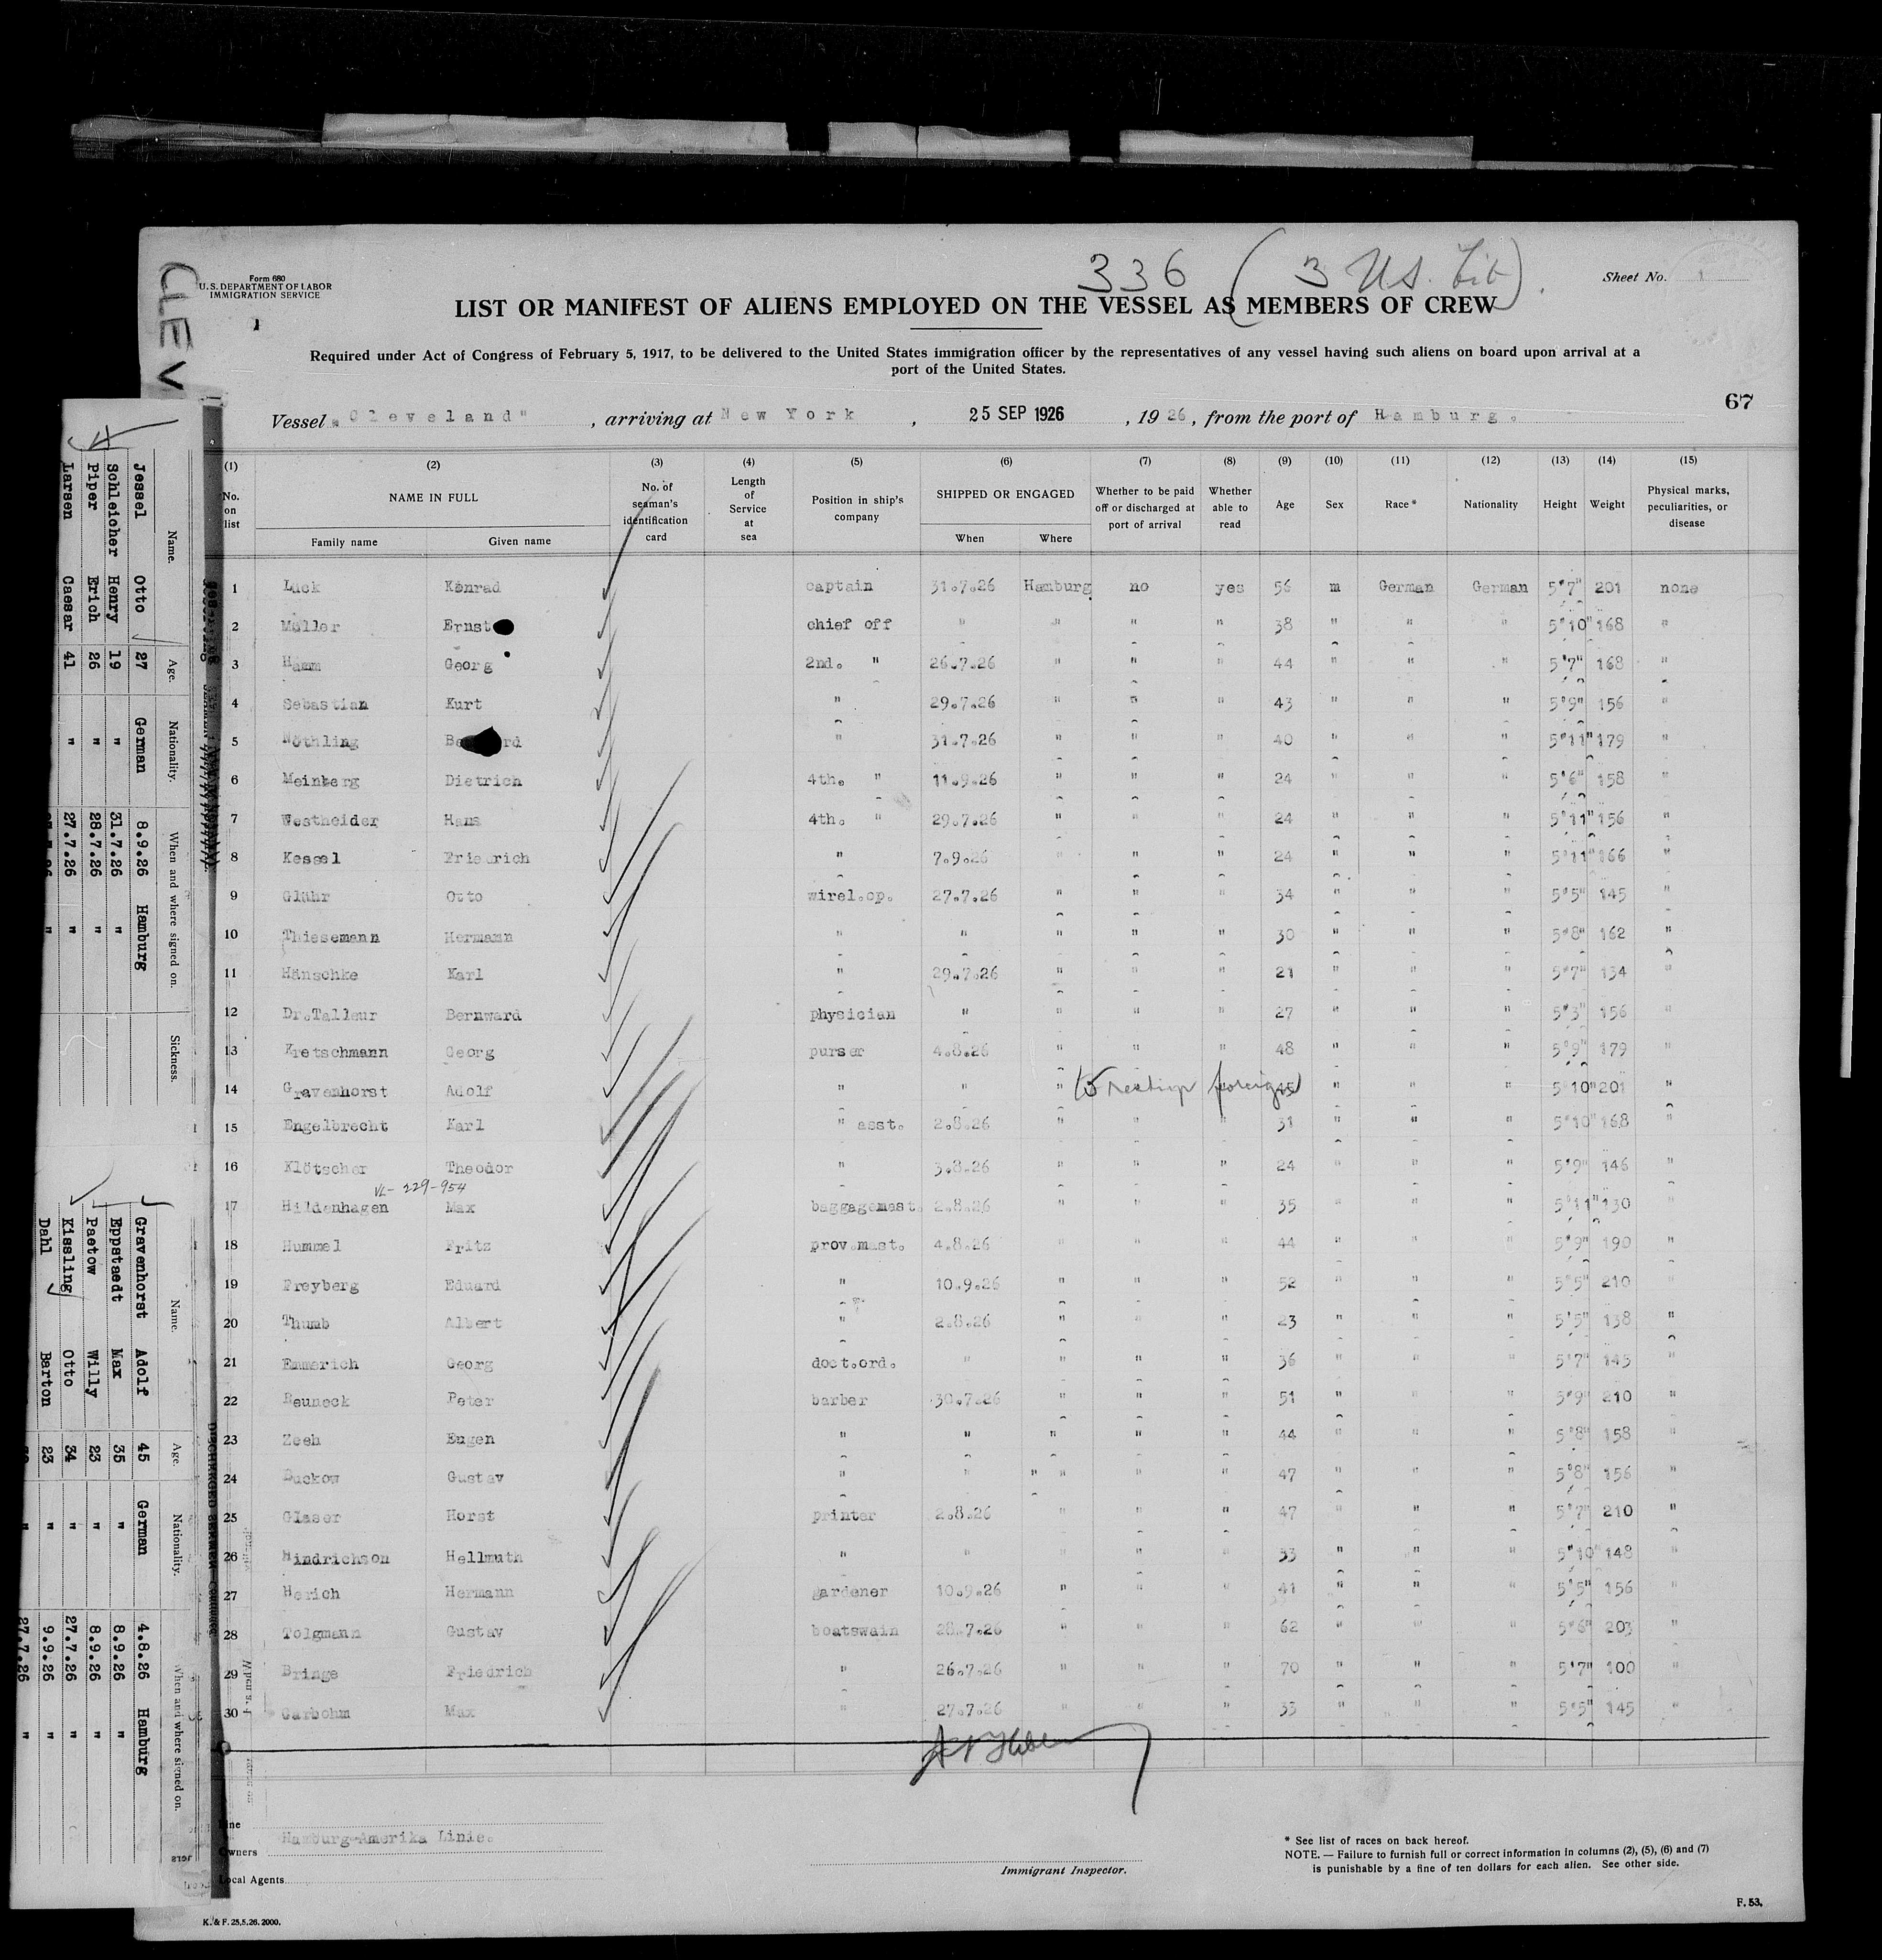 336 (3 US. Cit).
CLEV
Form 680
U.S. DEPARTMENT OF LABOR
IMMIGRATION SERVICE
Sheet No. 1
LIST OR MANIFEST OF ALIENS EMPLOYED ON THE VESSEL AS MEMBERS OF CREW
Required under Act of Congress of February 5, 1917, to be delivered to the United States immigration officer by the representatives of any vessel having such aliens on board upon arrival at a
port of the United States.
67
Vessel „Cleveland", arriving at New York, 25 SEP 1926, 1926, from the port of Hamburg.
(1) (2) (3) (4) (5) (6) (7) (8) (9) (10) (11) (12) (13) (14) (15)
No. on list NAME IN FULL No. of seaman's identification card Length of Service at sea Position in ship's company SHIPPED OR ENGAGED Whether to be paid off or discharged at port of arrival Whether able to read Age Sex Race* Nationality Height Weight Physical marks, peculiarities, or disease
Family name Given name When Where
1 Luck Konrad captain 31.7.26 Hamburg no yes 56 m German German 5'7" 201 none
2 Müller Ernst chief off " " " " 38 " " " 5'10" 168 "
3 Hamm Georg 2nd. " 26.7.26 " " " 44 " " " 5'7" 168 "
4 Sebastian Kurt " 29.7.26 " " " 43 " " " 5'9" 156 "
5 Nöthling Be rd " 31.7.26 " " " 40 " " " 5'11" 179 "
6 Meinberg Dietrich 4th. " 11.9.26 " " " 24 " " " 5'6" 158 "
7 Westheider Hans 4th. " 29.7.26 " " " 24 " " " 5'11" 156 "
8 Kessel Friedrich " 7.9.26 " " " 24 " " " 5'11" 166 "
9 Glühr Otto wirel.op. 27.7.26 " " " 34 " " " 5'5" 145 "
10 Thiesemann Hermann " " " " " 30 " " " 5'8" 162 "
11 Hänschke Karl " 29.7.26 " " " 21 " " " 5'7" 134 "
12 Dr.Talleur Bernward physician " " " " 27 " " " 5'3" 156 "
13 Kretschmann Georg purser 4.8.26 " " " 48 " " " 5'9" 179 "
14 Gravenhorst Adolf " " " to reship foreign 45 " " " 5'10" 201 "
15 Engelbrecht Karl " asst. 2.8.26 " " " 31 " " " 5'10" 168 "
16 Klötscher Theodor " 3.8.26 " " " 24 " " " 5'9" 146 "
VL-229-954
17 Hildenhagen Max baggagemast. 2.8.26 " " " 35 " " " 5'11" 130 "
18 Hummel Fritz prov.mast. 4.8.26 " " " 44 " " " 5'9" 190 "
19 Freyberg Eduard " 10.9.26 " " " 52 " " " 5'5" 210 "
20 Thumb Albert " 2.8.26 " " " 23 " " " 5'5" 138 "
21 Emmerich Georg doct.ord. " " " " 36 " " " 5'7" 145 "
22 Beuneck Peter barber 30.7.26 " " " 51 " " " 5'9" 210 "
23 Zeeh Eugen " " " " " 44 " " " 5'8" 158 "
24 Buckow Gustav " " " " " " 47 " " " 5'8" 156 "
25 Glaser Horst printer 2.8.26 " " " 47 " " " 5'7" 210 "
26 Hindrichson Hellmuth " " " " " 33 " " " 5'10" 148 "
27 Herich Hermann gardener 10.9.26 " " " 41 " " " 5'5" 156 "
28 Tolgmann Gustav boatswain 28.7.26 " " " 62 " " " 5'6" 203 "
29 Bringe Friedrich " 26.7.26 " " " 70 " " " 5'7" 100 "
30 Garbohm Max " 27.7.26 " " " 33 " " " 5'5" 145 "
Line
Hamburg-Amerika Linie.
Owners
Local Agents
Immigrant Inspector.
* See list of races on back hereof.
NOTE. — Failure to furnish full or correct information in columns (2), (5), (6) and (7)
is punishable by a fine of ten dollars for each alien. See other side.
F. 53.
K. & F. 25.5.26. 2000.
Name. Age. Nationality. When and where signed on. Sickness.
Jessel Otto 27 German 8.9.26 Hamburg
Schleicher Henry 19 " 31.7.26 "
Piper Erich 26 " 28.7.26 "
Larsen Caesar 41 " 27.7.26 "
Name. Age. Nationality. When and where signed on.
Gravenhorst Adolf 45 German 4.8.26 Hamburg
Eppstaedt Max 35 " 8.9.26 "
Paetow Willy 23 " 8.9.26 "
Kissling Otto 34 " 27.7.26 "
Dahl Barton 23 " 9.9.26 "
" 27.7.26 "